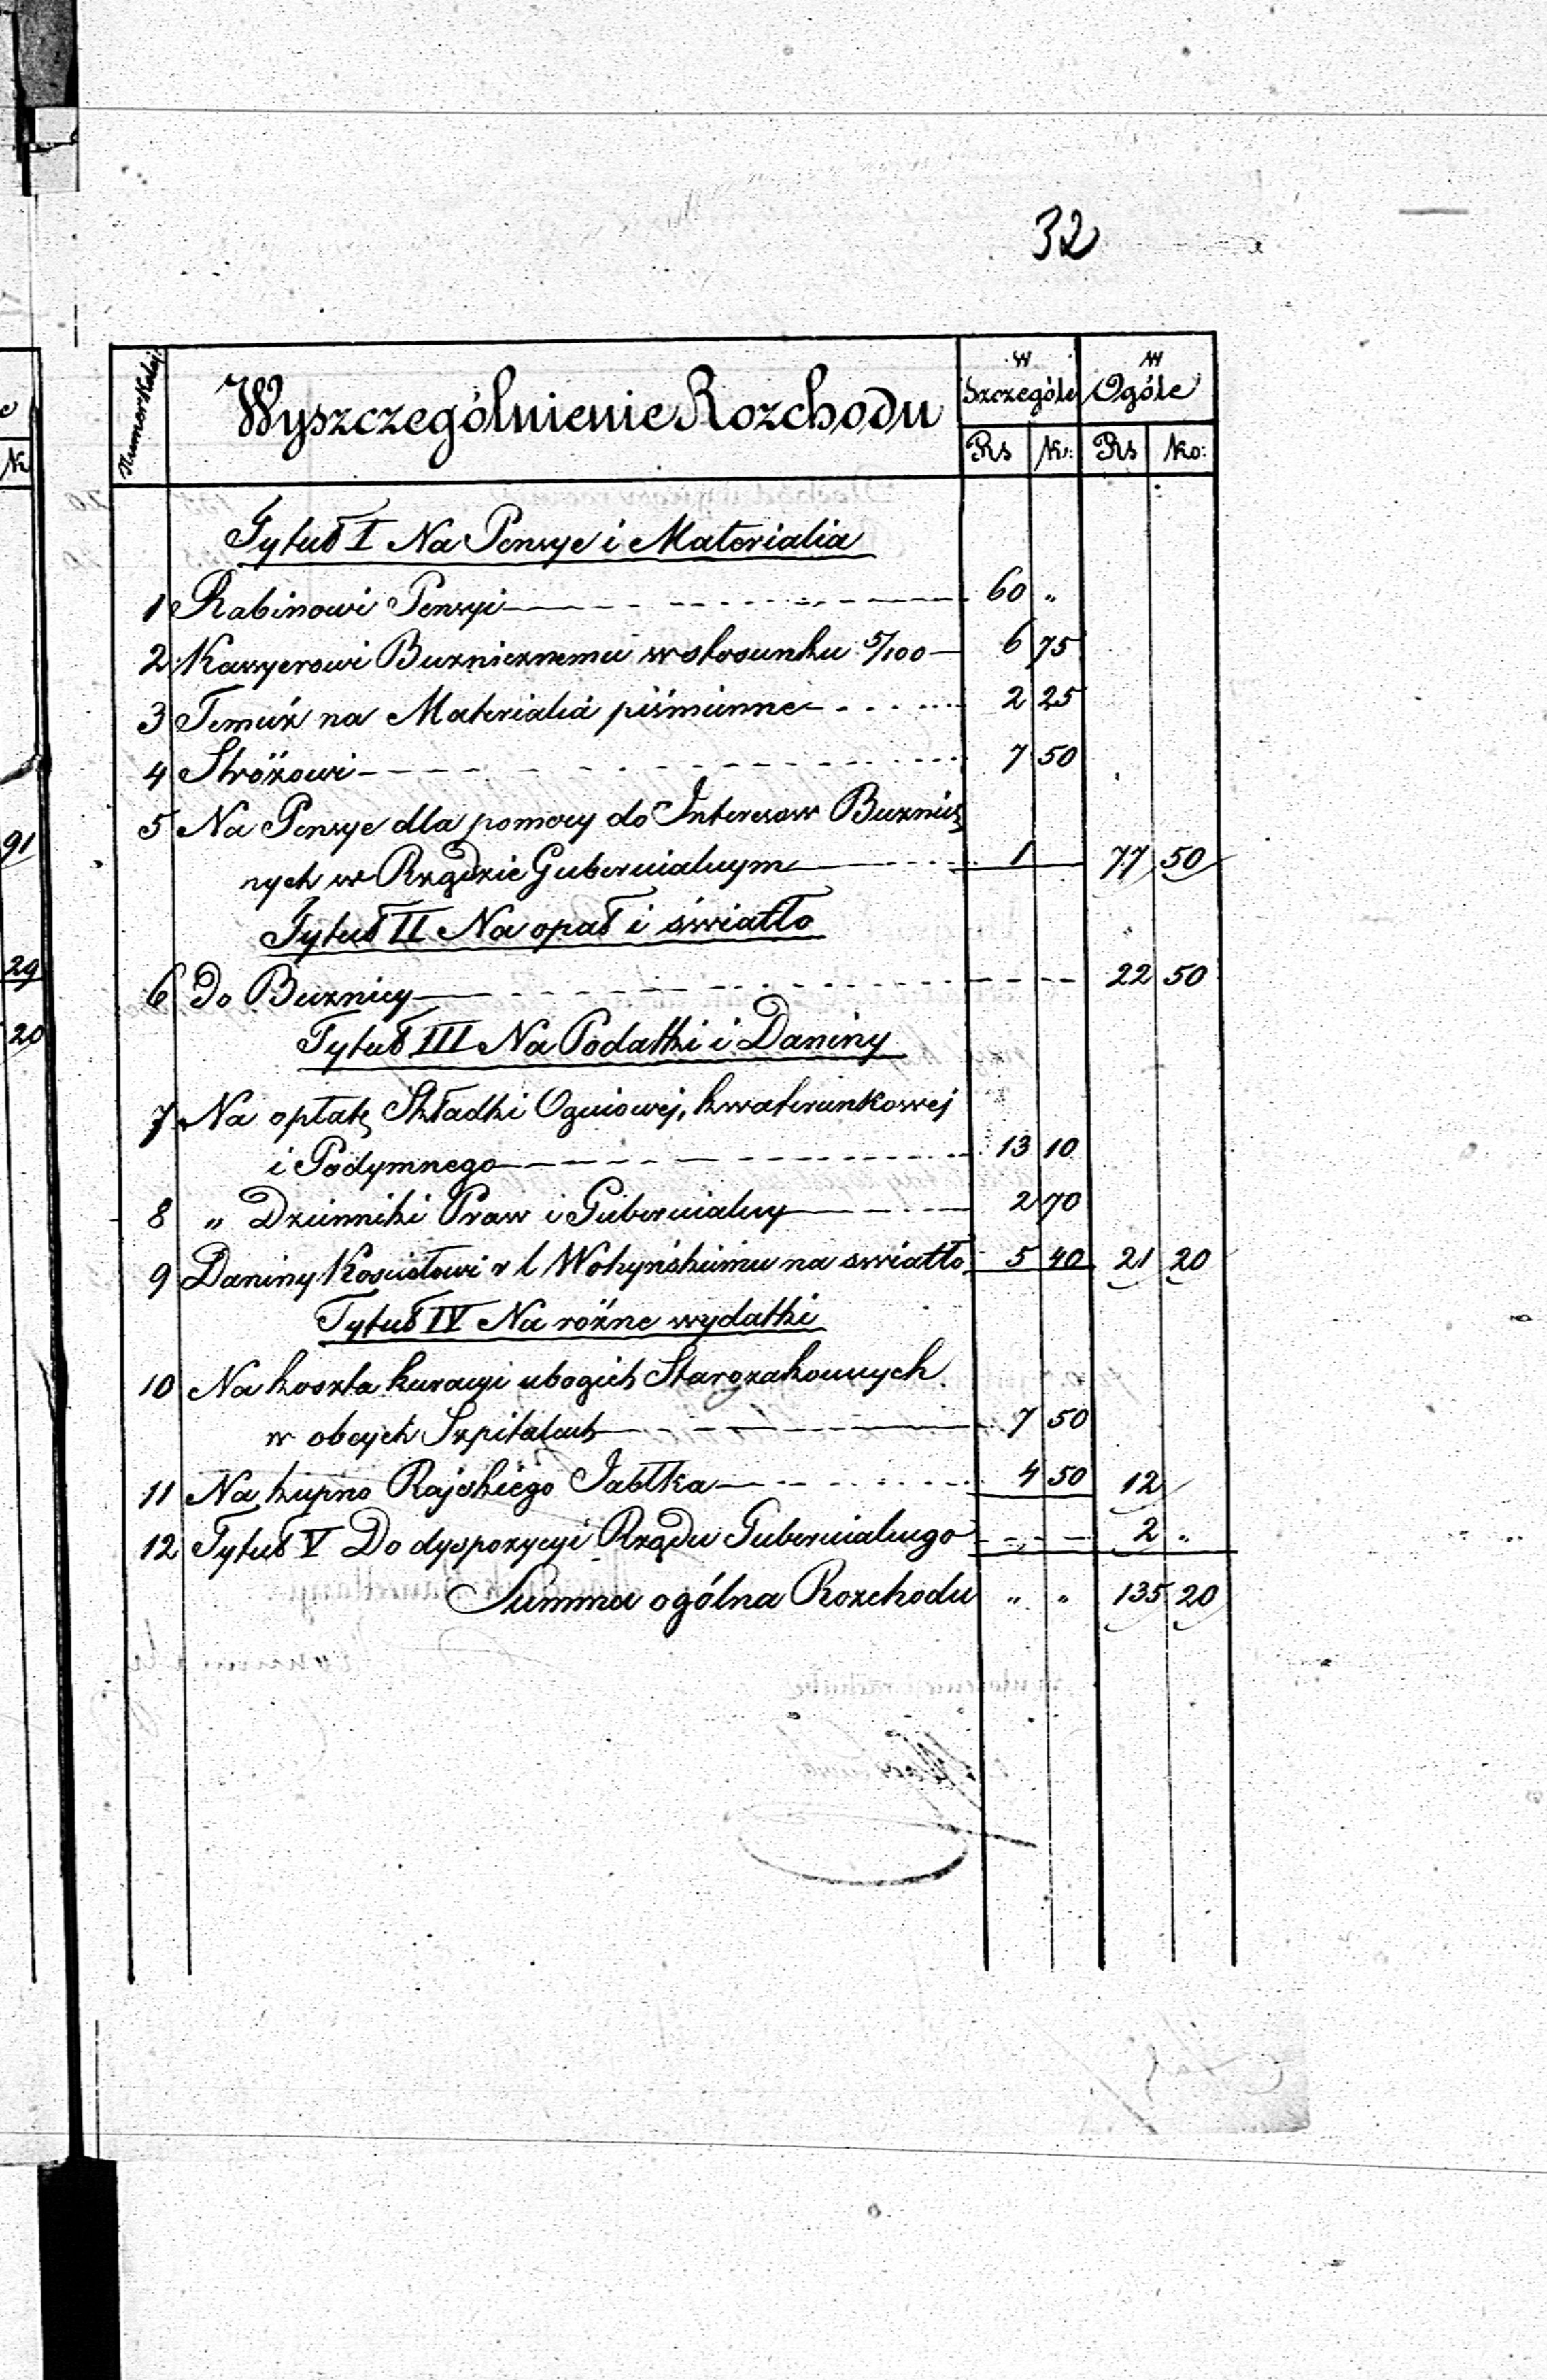 32
Numer Kolej:
Wyszczególnienie Rozchodu
w Szczególe
w Ogóle
Rs Ko: Rs Ko:
Tytuł I Na Pensye i Materialia
1 Rabinowi Pensyi 60 "
2 Kassyerowi Bużnicznemu w stosunku 5/100 6 75
3 Temuż na Materialia piśmienne 2 25
4 Stróżowi 7 50
5 Na Pensye dla pomocy do Interesow Bużnicz
nych w Rządzie Gubernialnym 1 77 50
Tytuł II Na opał i światło
6 Do Bużnicy 22 50
Tytuł III Na Podatki i Daniny
7 Na opłatę Składki Ogniowej, kwaterunkowej
i Podymnego 13 10
8 " Dzienniki Praw i Gubernialny 2 70
9 Daniny Kosciołowi r l Wohyńskiemu na swiatło 5 40 21 20
Tytuł IV Na różne wydatki
10 Na koszta kuracyi ubogich Starozakonnych
w obcych Szpitalach 7 50
11 Na kupno Rajskiego Jabłka 4 50 12
12 Tytuł V Do dyspozycyi Rządu Gubernialnego 2 "
Summa ogólna Rozchodu " " 135 20
91
29
20